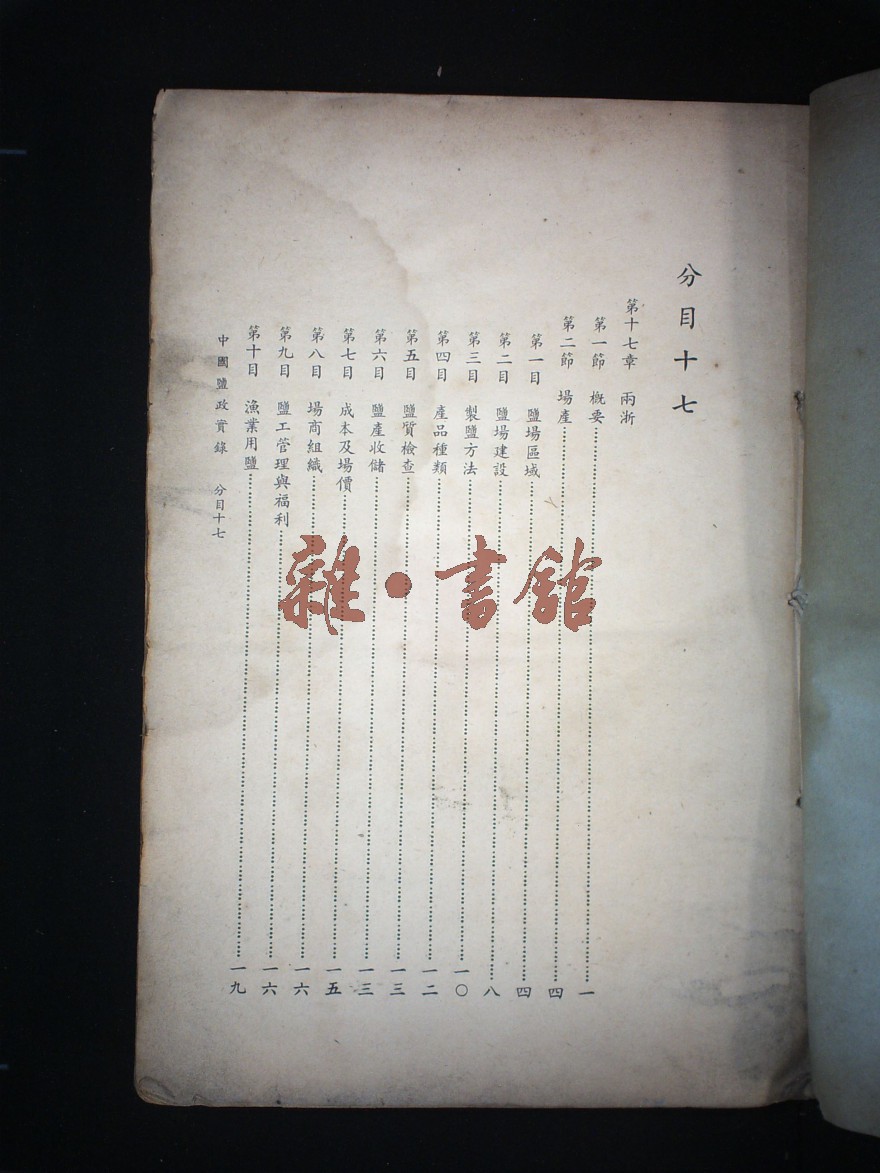 分目十七
第十七章　兩浙
第一節　概要……………………一
第二節　場產……………………四
第一目　鹽場區域……………………四
第二目　鹽場建設……………………八
第三目　製鹽方法……………………一〇
第四目　產品種類……………………一二
第五目　鹽質檢查……………………一三
第六目　鹽產收儲……………………一三
第七目　成本及場價……………………一五
第八目　場商組織……………………一六
第九目　鹽工管理與福利……………………一六
第十目　漁業用鹽……………………一九
中國鹽政實錄　分目十七
雜·書館